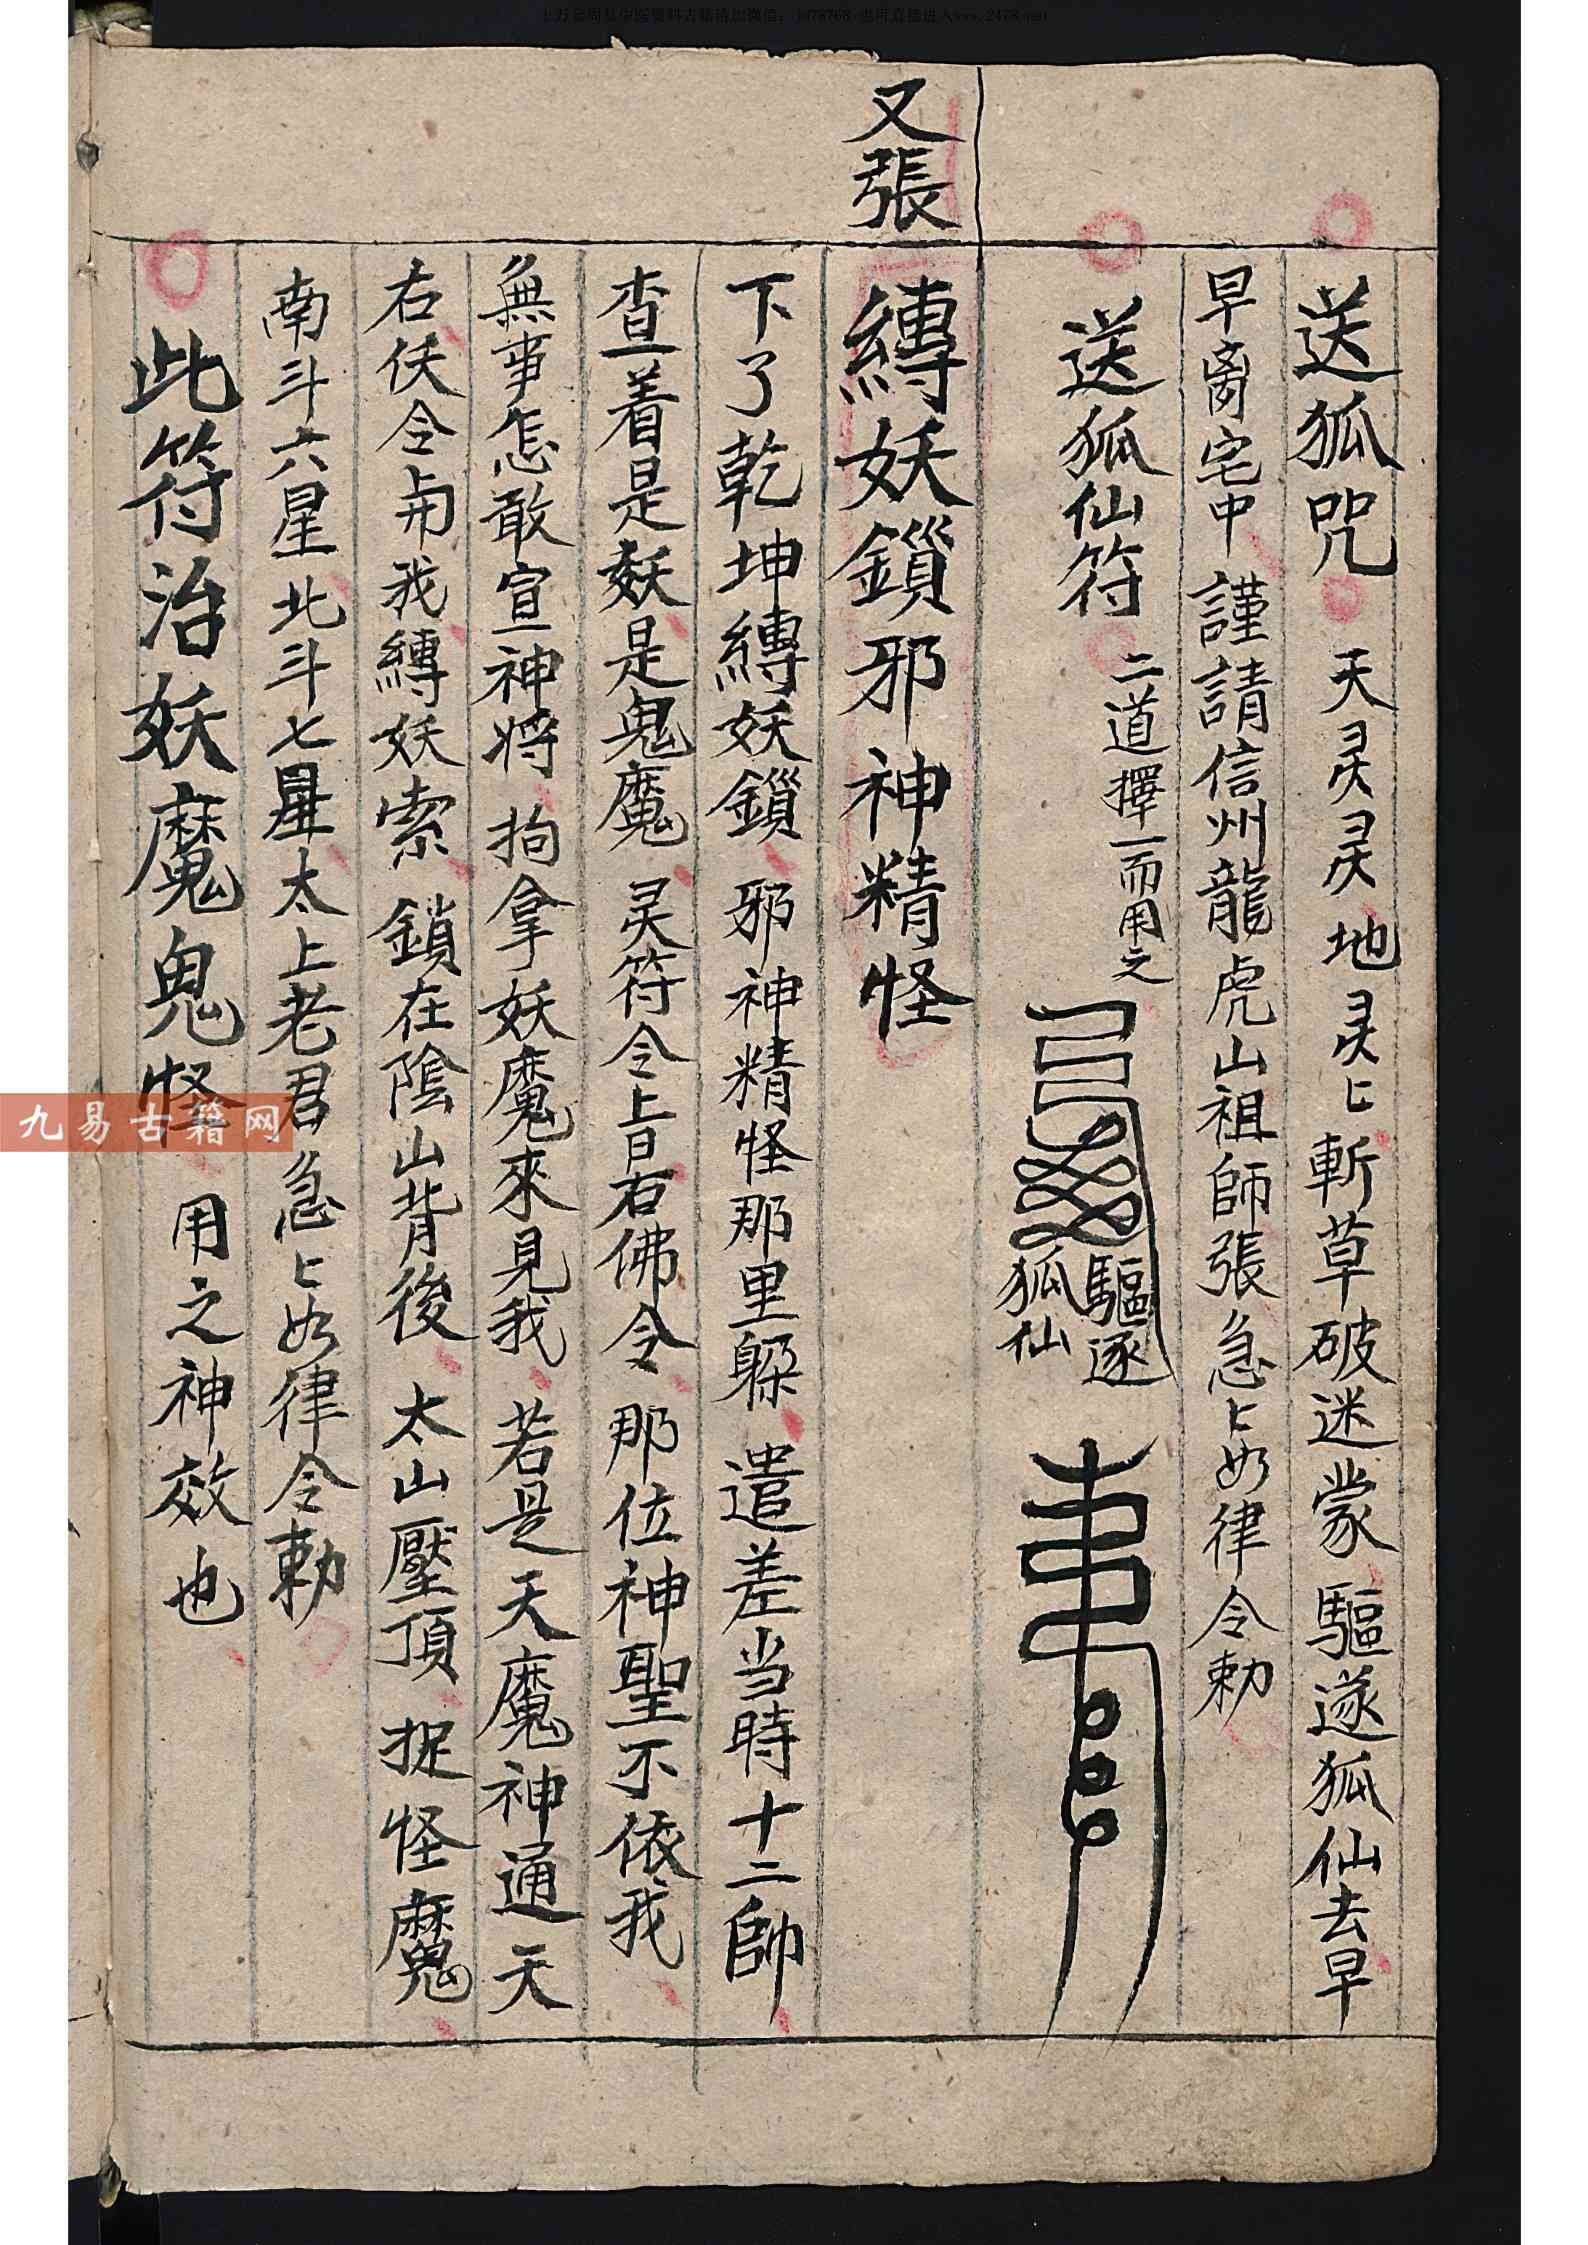 送狐咒 天灵灵地灵匕斬草破迷蒙驅遂狐仙去早
早离宅中 謹請信州龍虎山祖師張急匕如律令勅
送狐仙符 二道擇一而用之
驅逐
狐仙
又張
縛妖鎖邪神精怪
下了乾坤縛妖鎖 邪神精怪那里躲 遣差当時十二帥
查着是妖是鬼魔 灵符令上旨右佛令 那位神聖不依我
無事怎敢宣神将 拘拿妖魔來見我 若是天魔神通天
右伏令
我縛妖索 鎖在陰山背後 太山壓頂 捉怪魔
南斗六星北斗七星太上老君急匕如律令勅
此符治妖魔鬼怪 用之神效也
九易古籍网